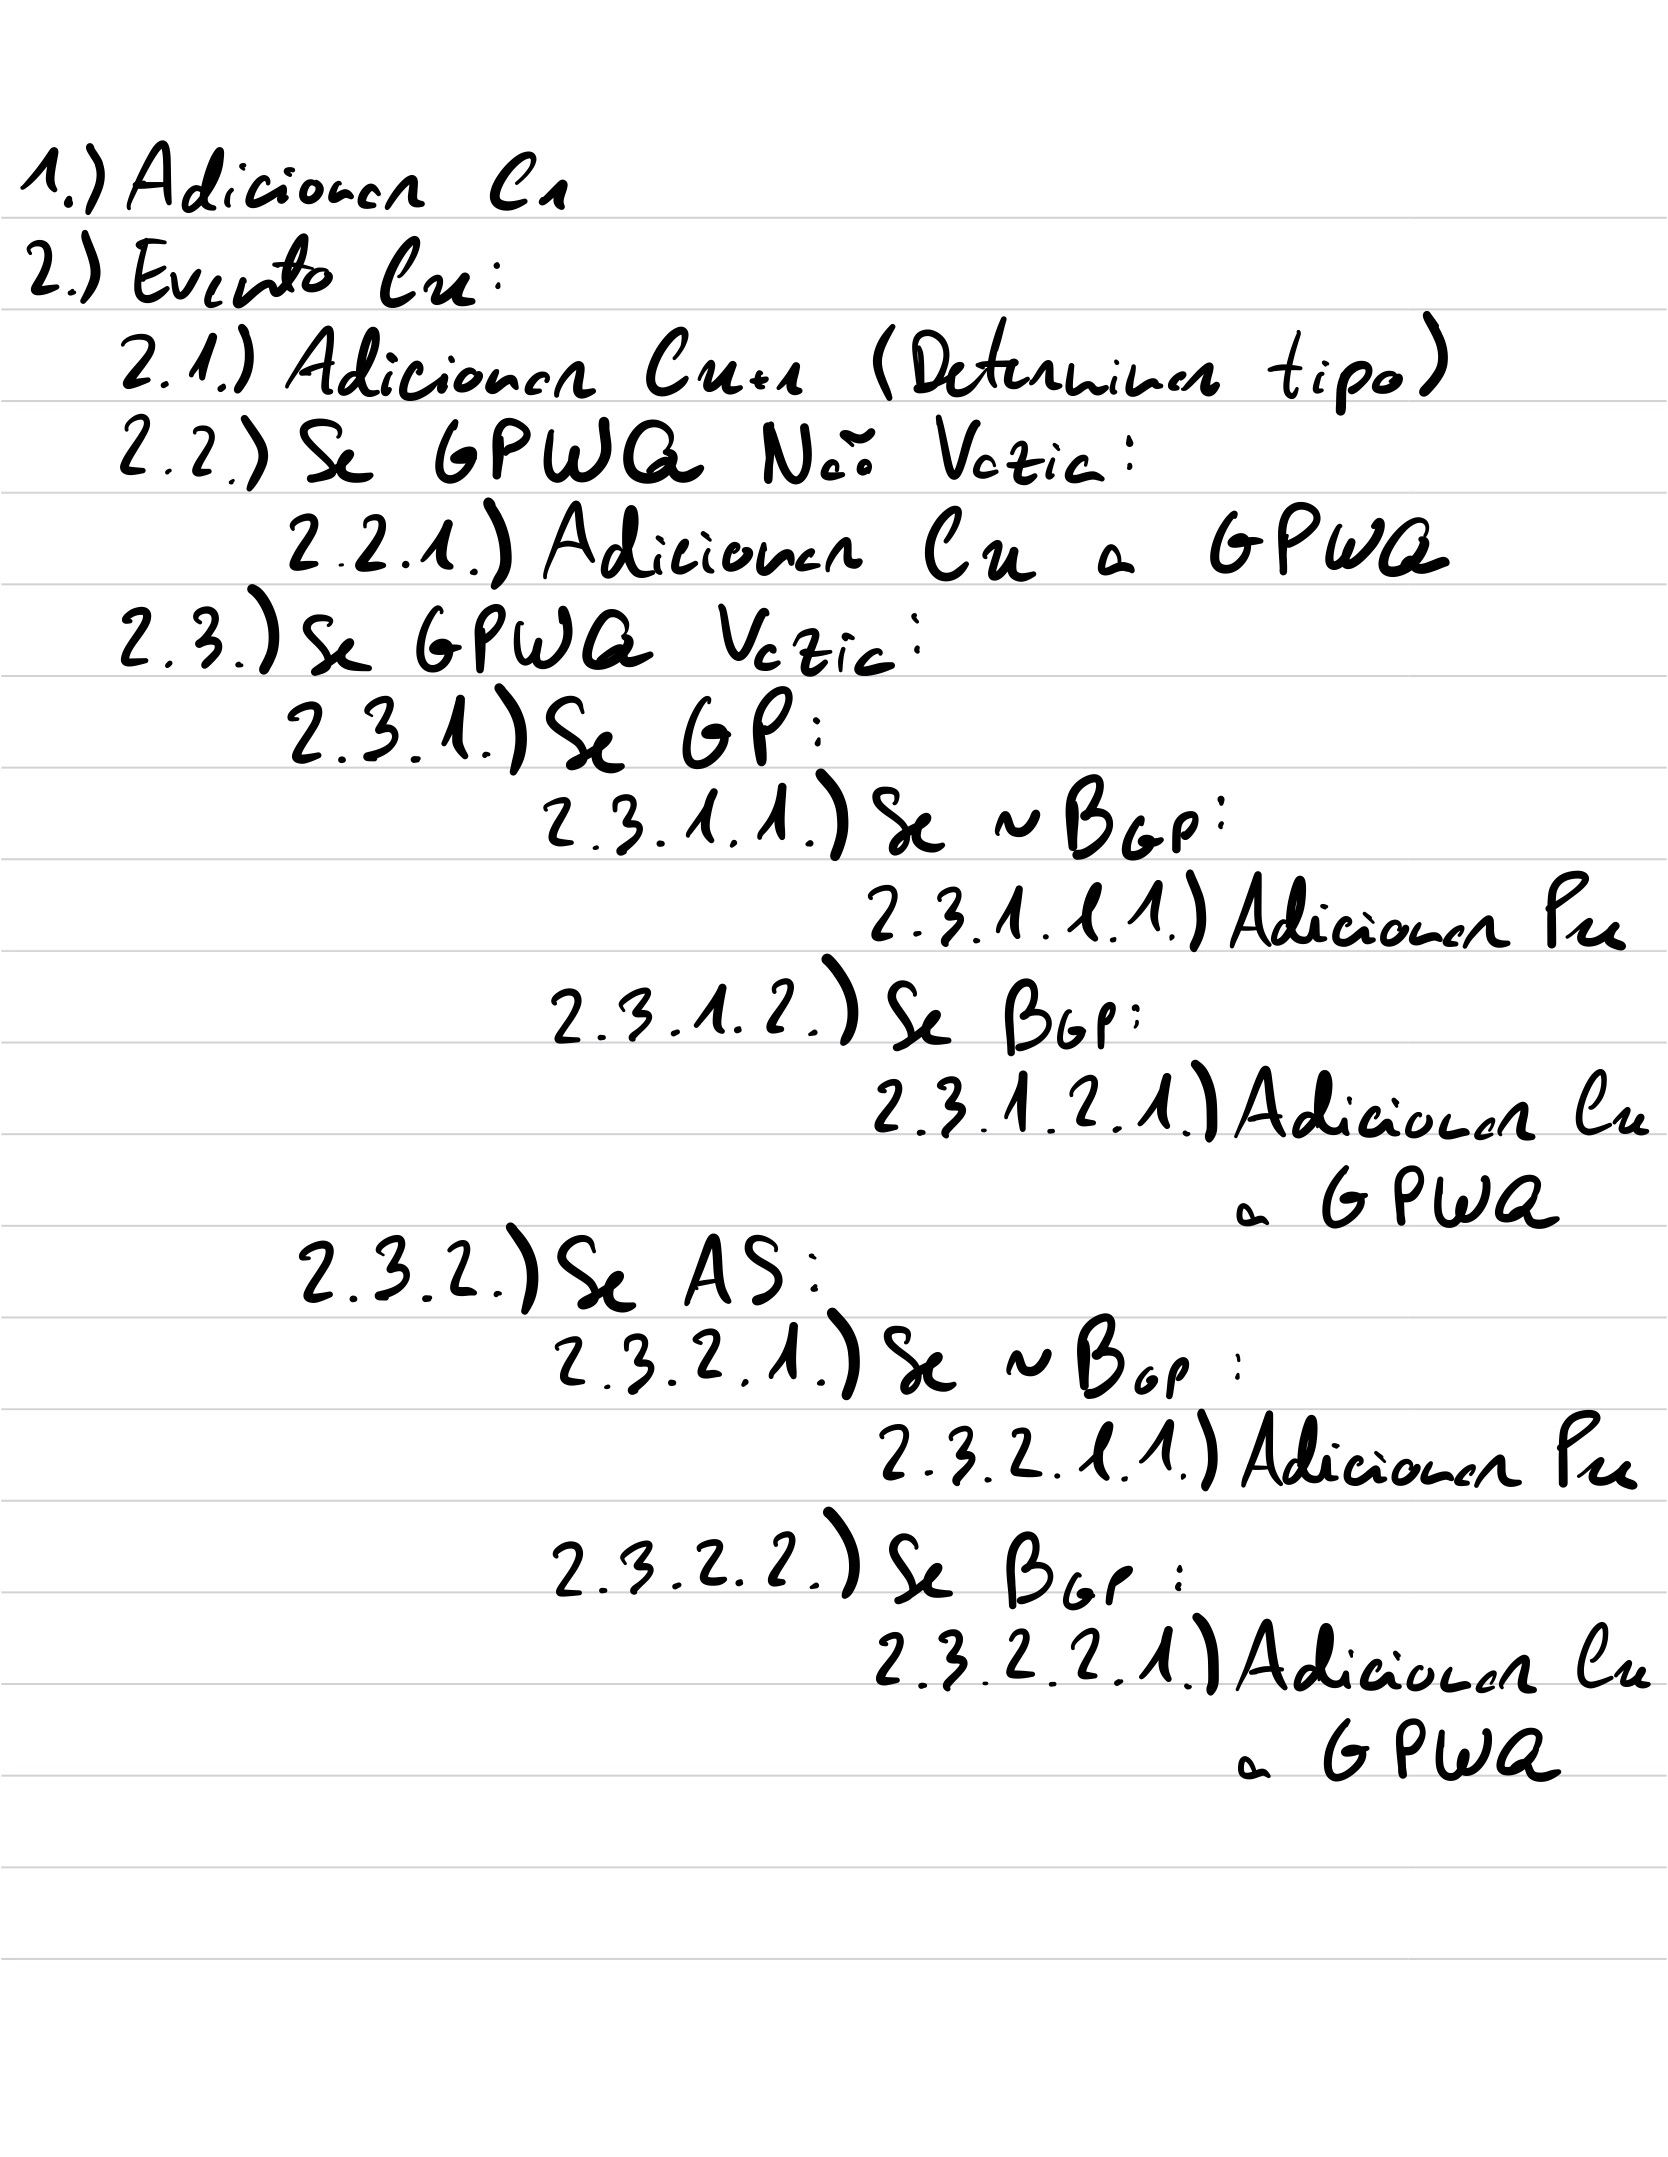 1.) Adicionar C1
2.) Evento Cn:
2.1.) Adicionar Cn+1 (Determinar tipo)
2.2.) Se GPWQ Não Vazia:
2.2.1.) Adicionar Cn a GPWQ
2.3.) Se GPWQ Vazia:
2.3.1.) Se GP:
2.3.1.1.) Se ~BGP:
2.3.1.1.1.) Adicionar Pn
2.3.1.2.) Se BGP:
2.3.1.2.1.) Adicionar Cn
a GPWQ
2.3.2.) Se AS:
2.3.2.1.) Se ~BGP:
2.3.2.1.1.) Adicionar Pn
2.3.2.2.) Se BGP:
2.3.2.2.1.) Adicionar Cn
a GPWQ